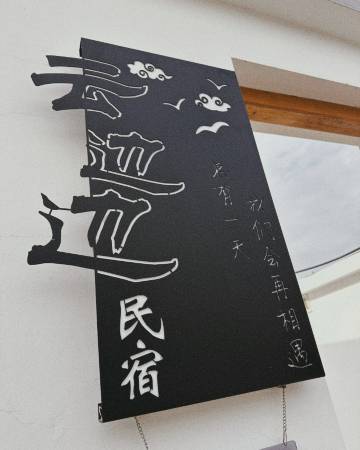 民宿
总有一天
我们会再相遇